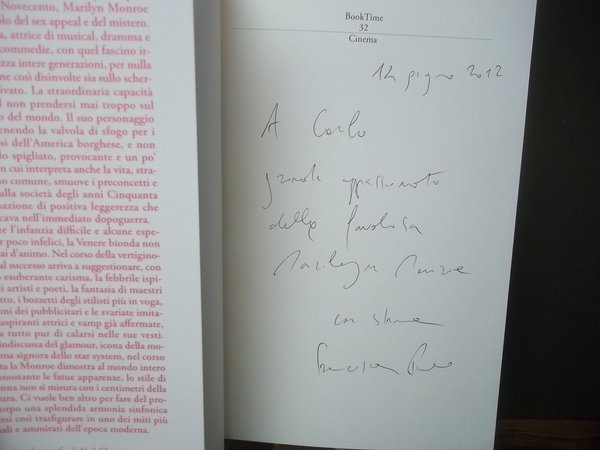 Novecento, Marilyn Monroe
olo del sex appeal e del mistero.
a, attrice di musical, dramma e
commedie, con quel fascino ir-
zza intere generazioni, per nulla
ne così disinvolte sia sullo scher-
ivato. La straordinaria capacità
l non prendersi mai troppo sul
o del mondo. Il suo personaggio
nendo la valvola di sfogo per i
si dell'America borghese, e non
lo spigliato, provocante e un po'
n cui interpreta anche la vita, stra-
so comune, smuove i preconcetti e
alla società degli anni Cinquanta
sazione di positiva leggerezza che
cava nell'immediato dopoguerra.
e l'infanzia difficile e alcune espe-
r poco infelici, la Venere bionda non
ai d'animo. Nel corso della vertigino-
al successo arriva a suggestionare, con
o esuberante carisma, la febbrile ispi-
i artisti e poeti, la fantasia di maestri
tto, i bozzetti degli stilisti più in voga,
oni dei pubblicitari e le svariate imita-
aspiranti attrici e vamp già affermate,
a tutto pur di calarsi nelle sue vesti,
indiscussa del glamour, icona della mo-
ma signora dello star system, nel corso
ta la Monroe dimostrò al mondo intero
onostante le fatue apparenze, lo stile di
nna non si misura con i centimetri della
ura. Ci vuole ben altro per fare del pro-
orpo una splendida armonia sinfonica
ersi così trasfigurare in uno dei miti più
uali e ammirati dell'epoca moderna.
BookTime
32
Cinema
12 giugno 2012
A Carlo
grande appassionato
della favolosa
Marilyn Monroe
con stima